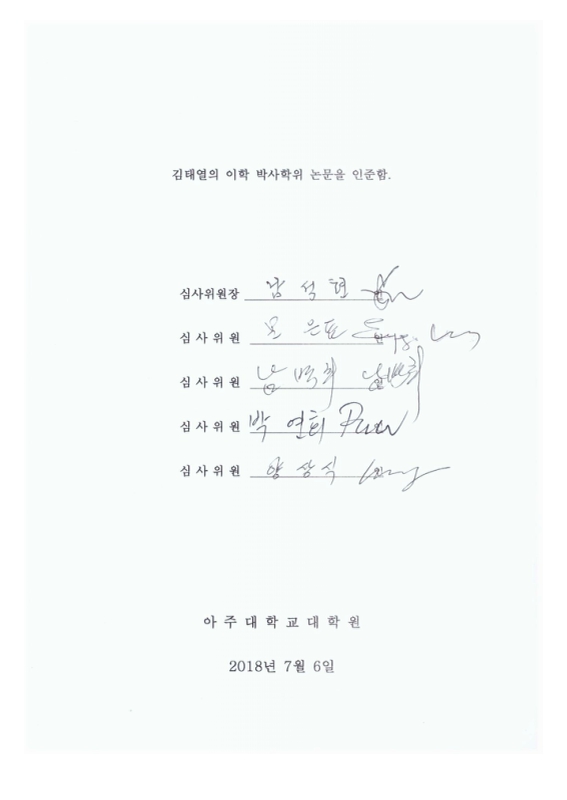 김태열의 이학 박사학위 논문을 인준함.
심사위원장 남 석 현
심 사 위 원 모 은표
심 사 위 원 남 백희
심 사 위 원 박 연희
심 사 위 원 양 상 식
아 주 대 학 교 대 학 원
2018년 7월 6일